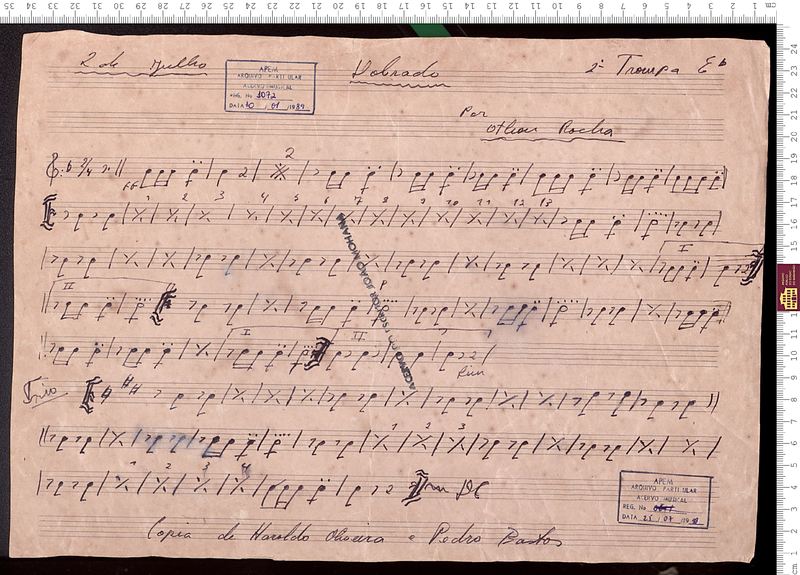 2 de Julho Dobrado 2ª Trompa Eb
APEM
ARQUIVO PARTICULAR
ACERVO MUSICAL
REG. No 1072
DATA 10 / 01 / 1989
Por
Othon Rocha
ff 2
1 2 3 4 5 6 7 8 9 10 11 12 13
I
II P
I II
Fim
Trio
1 2 3
1 2 3 4
DC
APEM
ARQUIVO PARTICULAR
ACERVO MUSICAL
REG. No
DATA 25 / 07 / 19
Copia de Haroldo Oliveira e Pedro Bastos